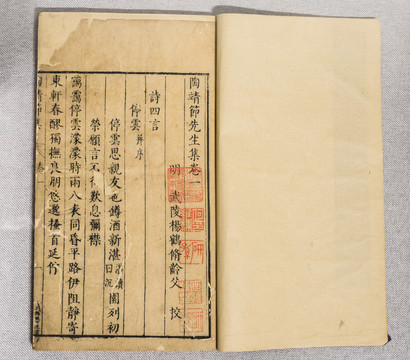 陶靖節先生集卷一
明 武陵楊鶴脩齡父 校
詩四言
停雲 并序
停雲思親友也罇酒新湛 園列初
榮願言不 歎息彌襟
靄靄停雲濛濛時雨八表同昏平路伊阻靜寄
東軒春醪獨撫良朋悠邈搔首延佇